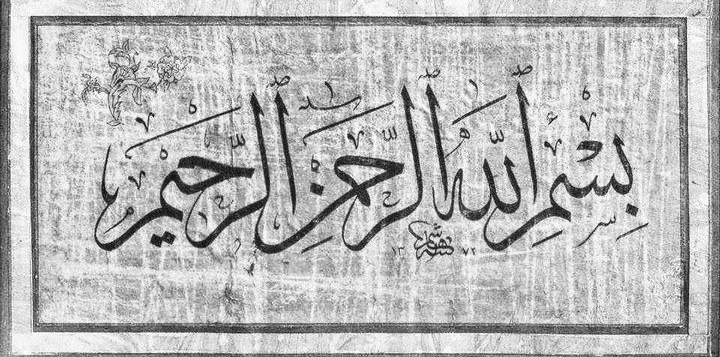 بِسْمِ اللهِ الرَّحْمٰنِ الرَّحِيمِ
١٣ ٧٢